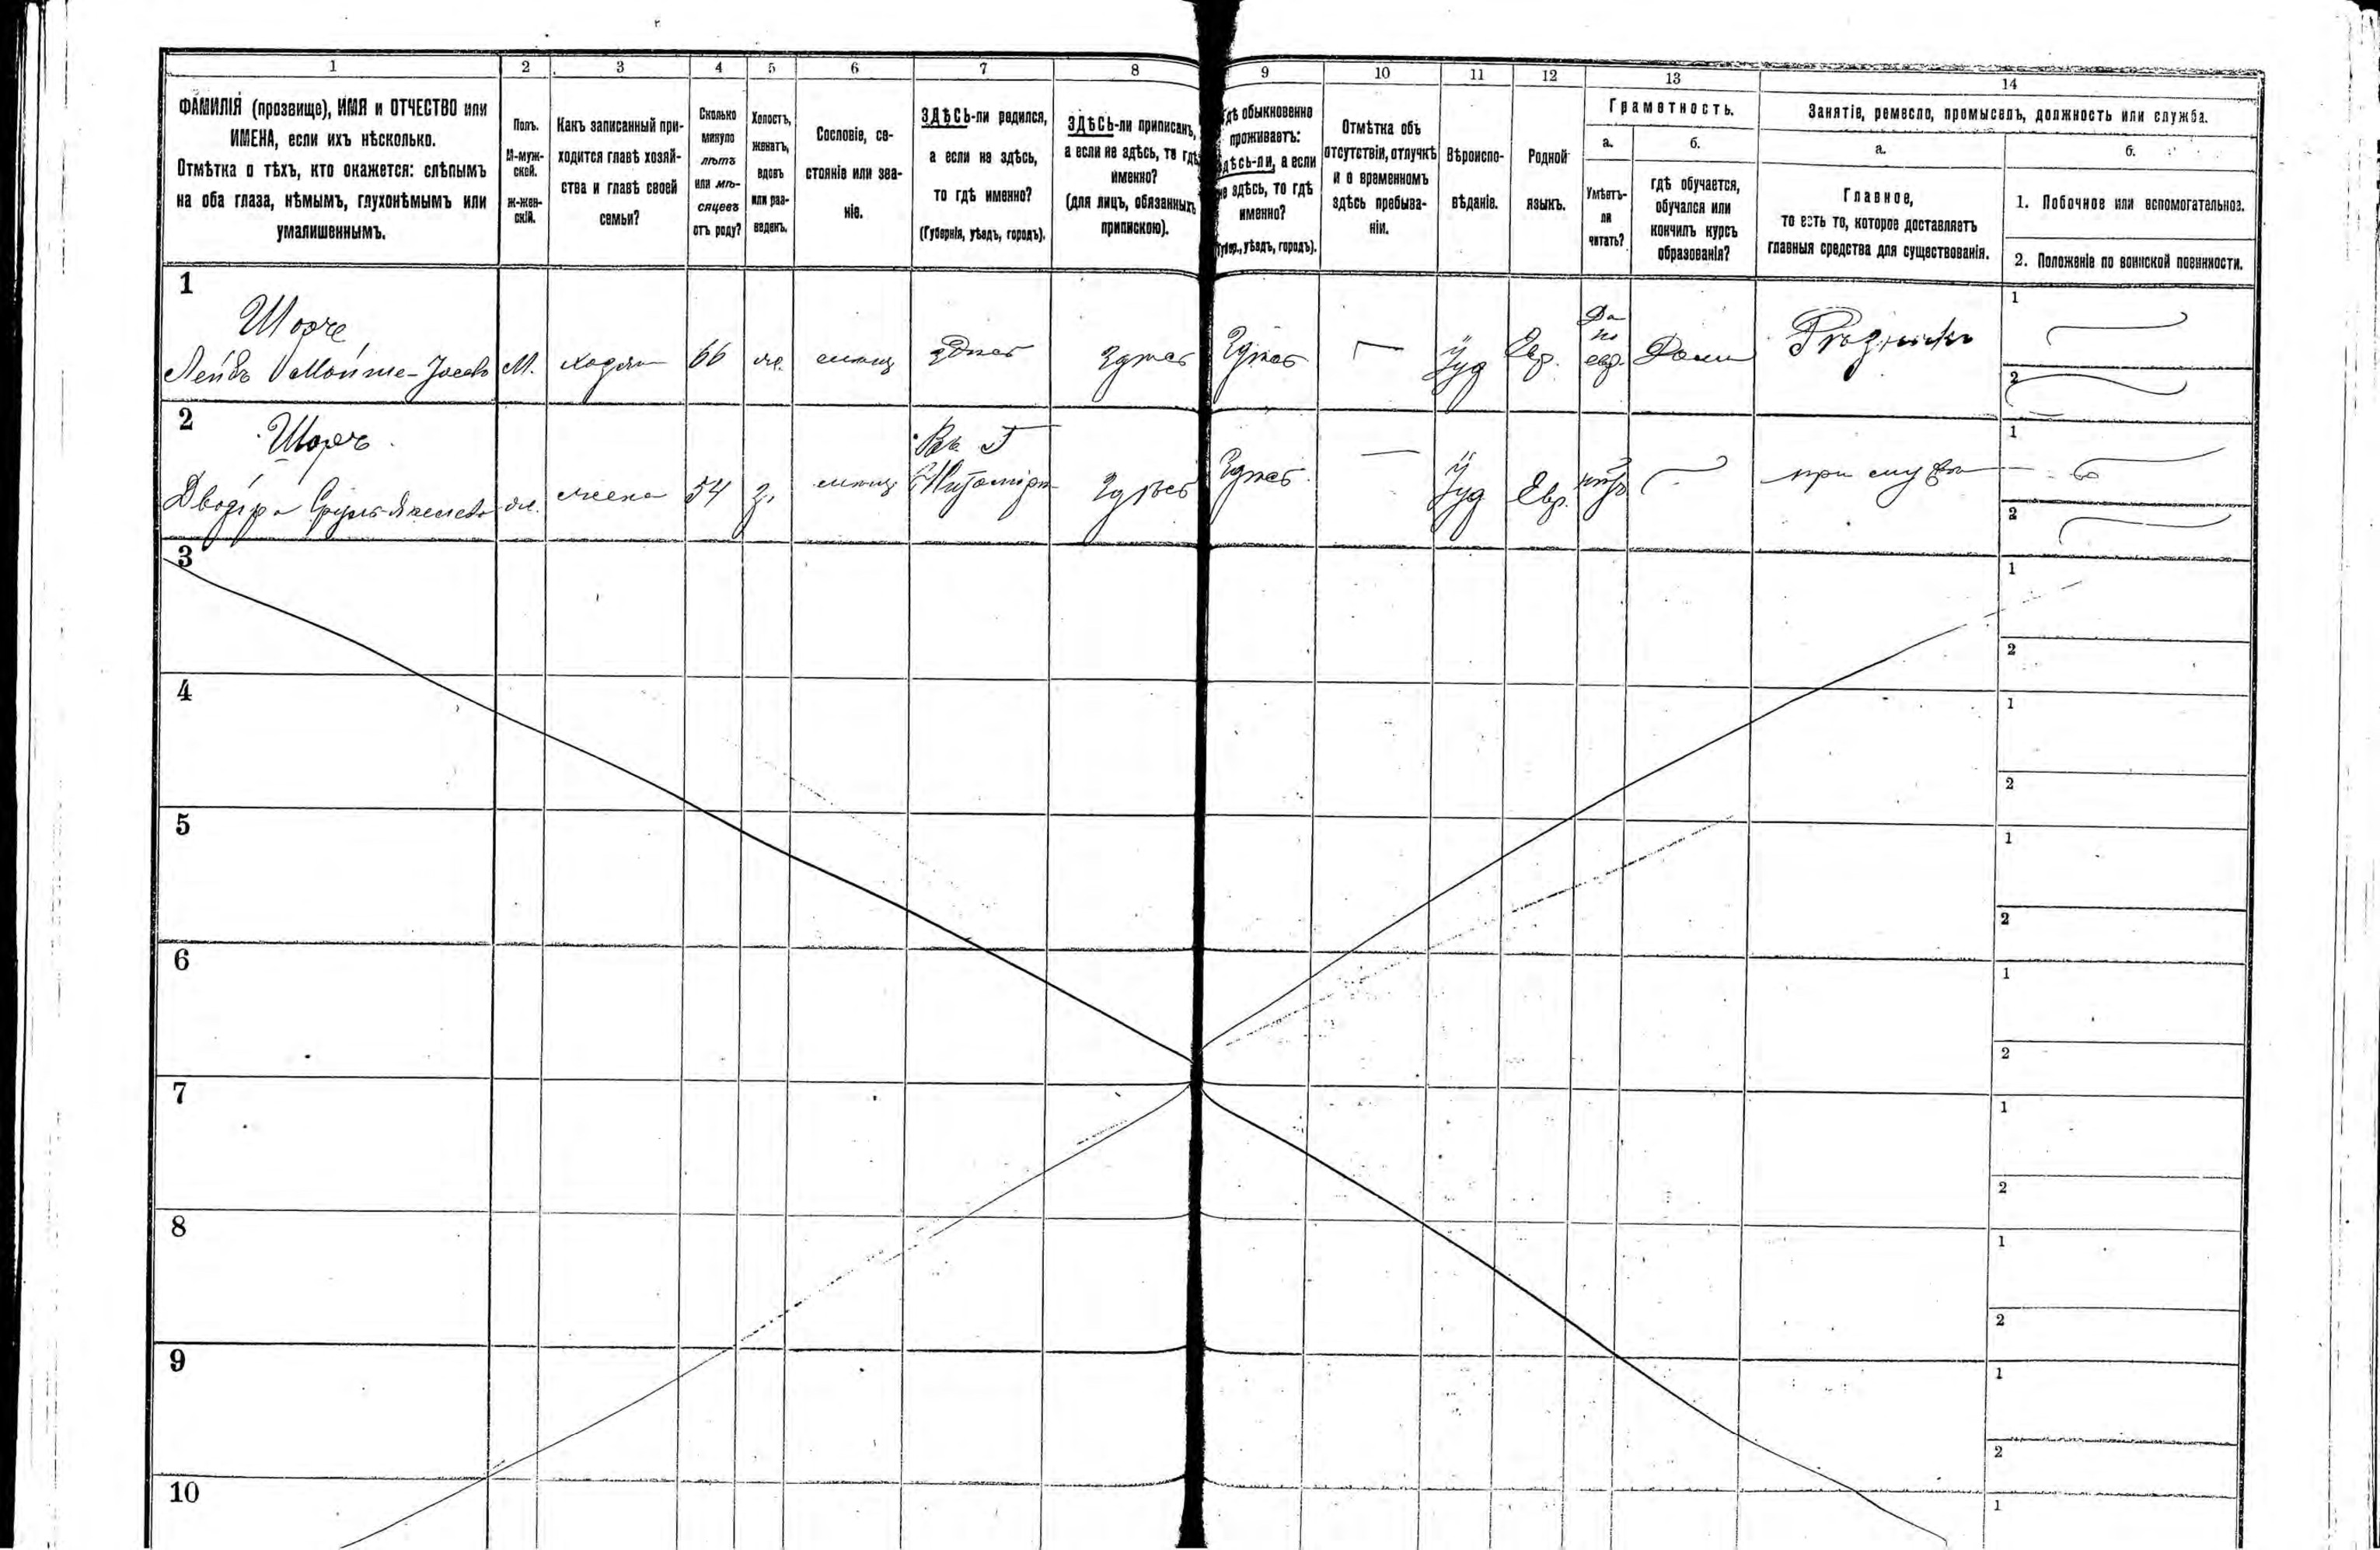 1
2
3
4
5
6
7
8
9
10
11
12
13
14
ФАМИЛІЯ (прозвище), ИМЯ и ОТЧЕСТВО или
ИМЕНА, если ихъ нѣсколько.
Отмѣтка о тѣхъ, кто окажется: слѣпымъ
на оба глаза, нѣмымъ, глухонѣмымъ или
умалишеннымъ.
Полъ.
М-муж-
ской.
Ж-жен-
скій.
Какъ записанный при-
ходится главѣ хозяй-
ства и главѣ своей
семьи?
Сколько
минуло
лѣтъ
или мѣ-
сяцевъ
отъ роду?
Холостъ,
женатъ,
вдовъ
или раз-
веденъ.
Сословіе, со-
стояніе или зва-
ніе.
ЗДѢСЬ-ли родился,
а если не здѣсь,
то гдѣ именно?
(Губернія, уѣздъ, городъ).
ЗДѢСЬ-ли приписанъ,
а если не здѣсь, то гдѣ
именно?
(для лицъ, обязанныхъ
припискою).
Гдѣ обыкновенно
проживаетъ:
здѣсь-ли, а если
не здѣсь, то гдѣ
именно?
(Губер., уѣздъ, городъ).
Отмѣтка объ
отсутствіи, отлучкѣ
и о временномъ
здѣсь пребыва-
ніи.
Вѣроиспо-
вѣданіе.
Родной
языкъ.
Грамотность.
а.
Умѣетъ-
ли
читать?
б.
гдѣ обучается,
обучался или
кончилъ курсъ
образованія?
Занятіе, ремесло, промыселъ, должность или служба.
а.
Главное,
то есть то, которое доставляетъ
главныя средства для существованія.
б.
1. Побочное или вспомогательное.
2. Положеніе по воинской повинности.
1
Лейбъ Мойше-Іосевъ
М.
66
здѣсь
здѣсь
здѣсь
Іуд
Евр.
Да
по
евр.
Дома
Рѣзникъ
1
2
2
Двойра
жена
54
з.
Въ г
Житомірѣ
здѣсь
здѣсь
Іуд
Евр.
нѣтъ
при мужѣ
1
2
3
1
2
4
1
2
5
1
2
6
1
2
7
1
2
8
1
2
9
1
2
10
1